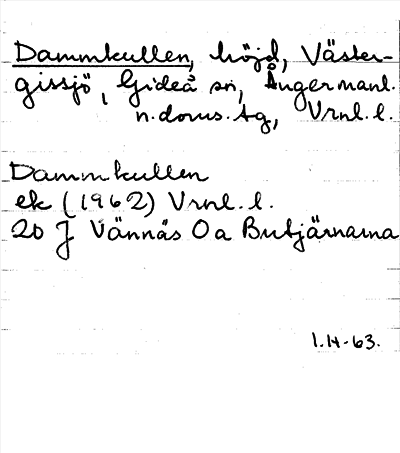 Dammkullen, höjd, Väster-
gissjö, Gideå sn, Ångermanl.
n. doms. tg, Vrnl. l.
Dammkullen
ek (1962) Vrnl. l.
20 J Vännäs Oa Butjärnarna
1.14-63.